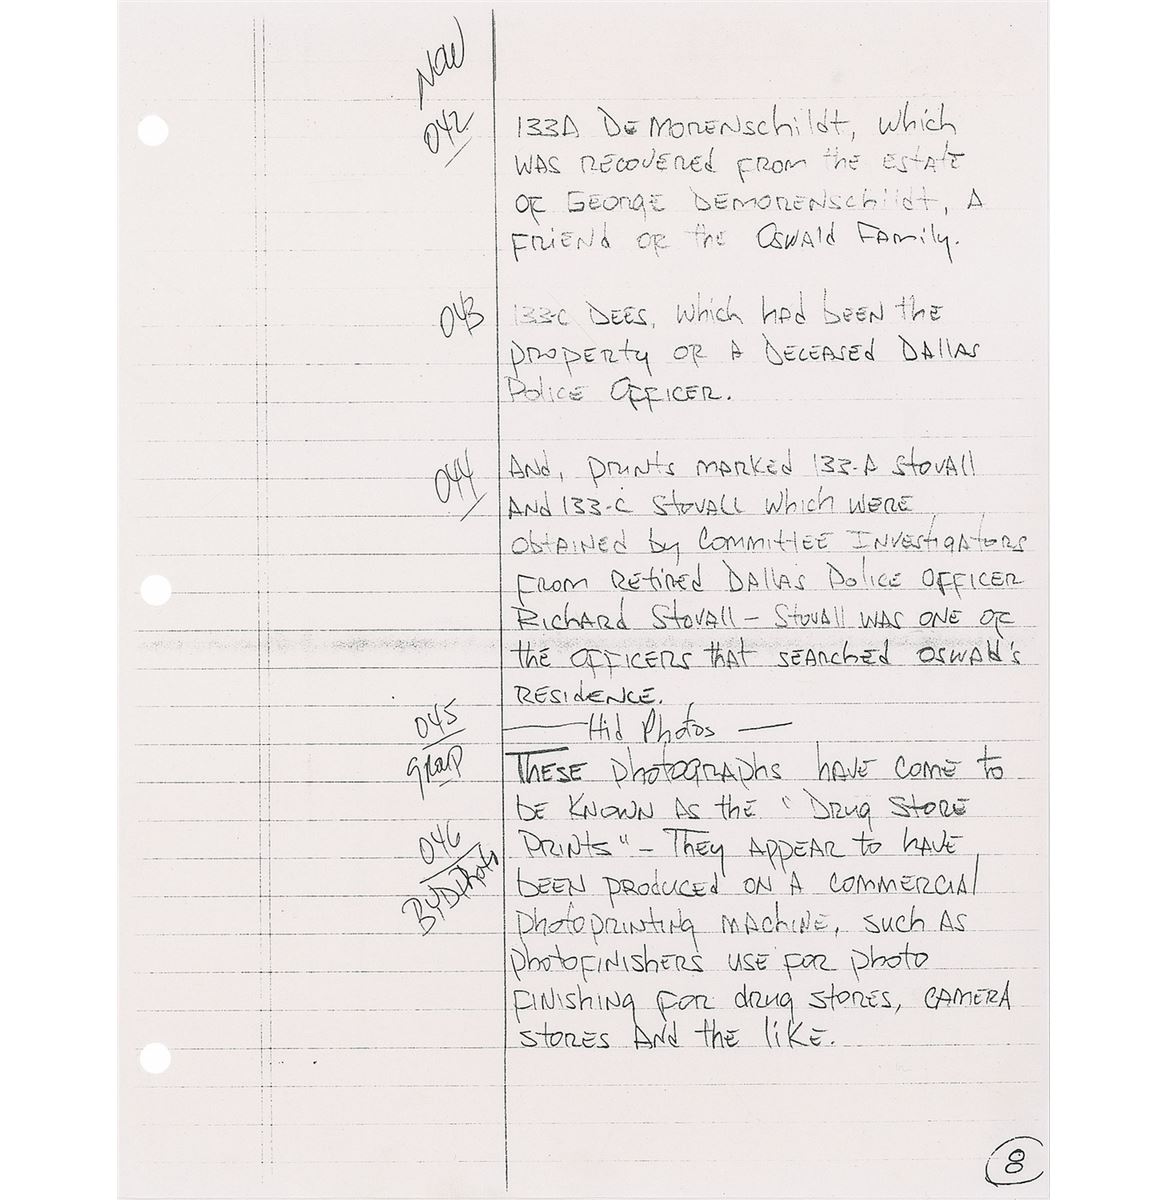 NOW
042
133A DeMORENSchildt, which
WAS RECOVERED FROM the ESTATE
OF GEORGE DEMORENSchildt, A
FRIENd OF the OSWAld FAMily.
043
133-C DEES, Which hAd bEEN the
PROPERTY OF A DECEASEd DALLAS
Police OFFICER.
044
ANd, PRINTS MARKEd 133-A StOVAll
ANd 133-C StOVALL Which WERE
ObtAINEd by COMMITTEE INVEStigAtORS
FROM REtiREd DALLAS POLICE OFFICER
RichARd StOVAll - StOVAll WAS ONE OF
the OFFICERS thAt SEARChEd OSWAld's
RESIdENCE.
045
Hid Photos
GROUP
THESE photogRAPhs hAVE COME to
bE KNOWN AS the "DRUg STORE
046
PRINTS" - They APPEAR to hAVE
BY D Photos
bEEN PROdUCEd ON A COMMERCIAl
photoprintiNg MAChiNE, such AS
photoFINIShERS USE FOR photo
FINIShiNg FOR dRUg stORES, CAMERA
stORES ANd the liKE.
8